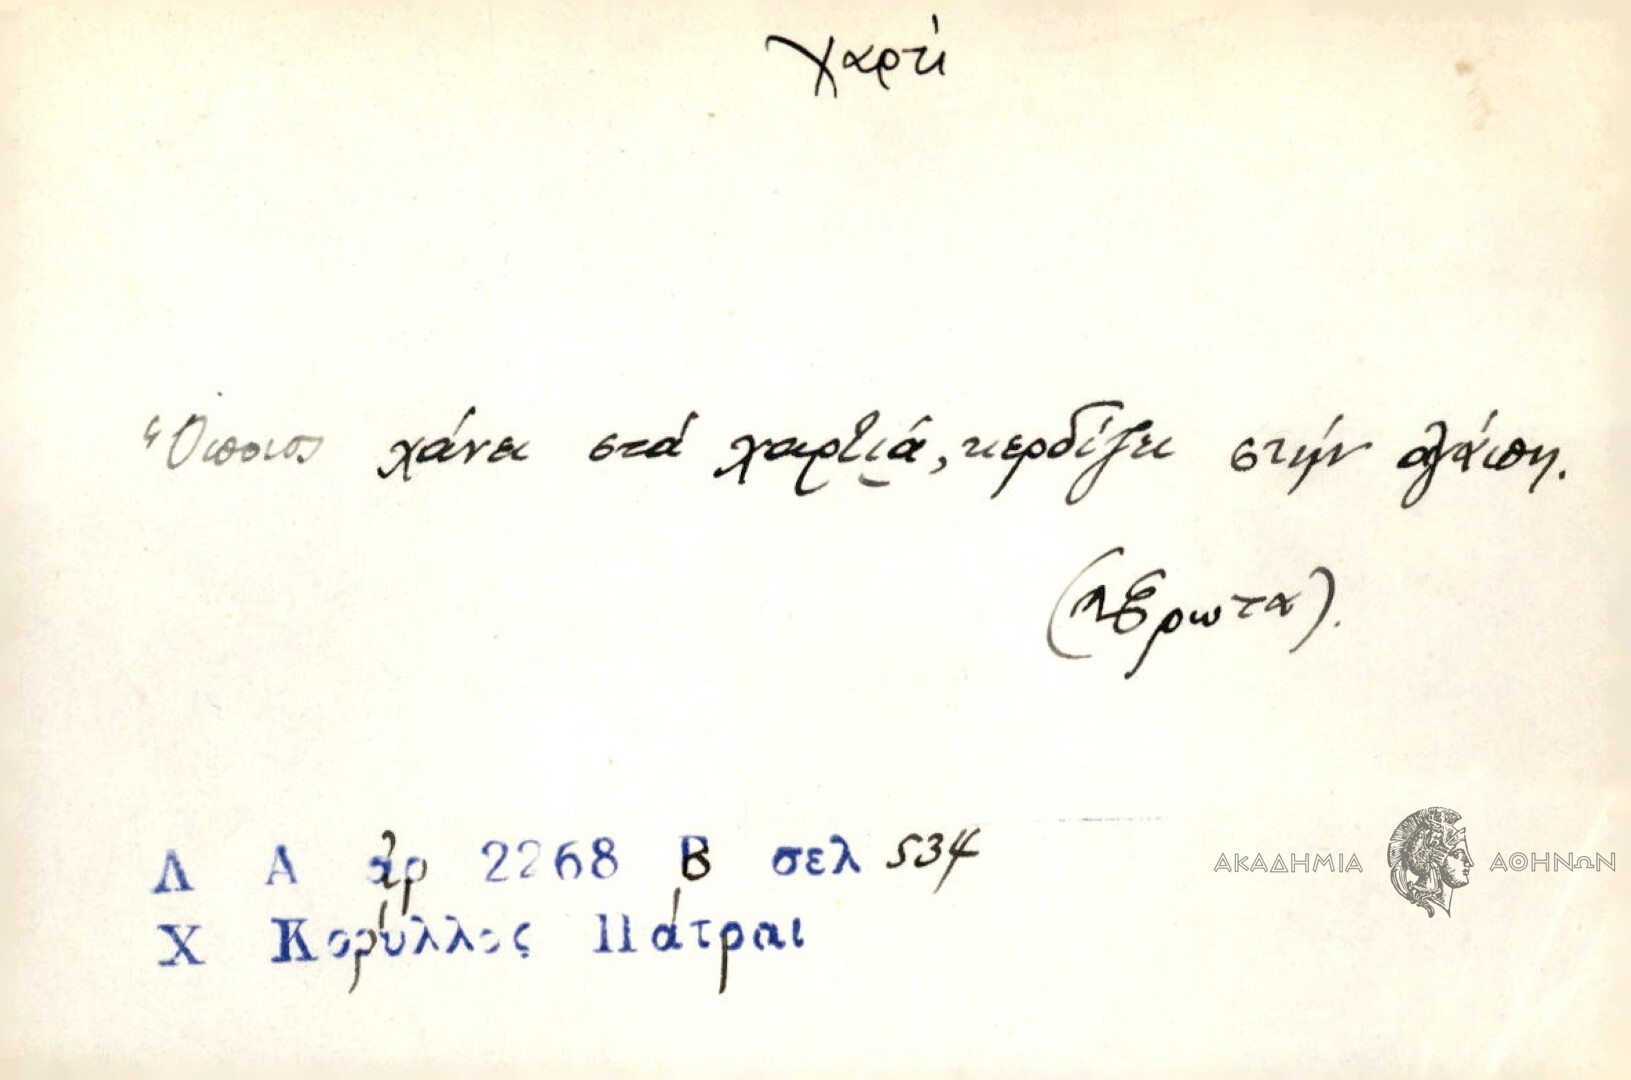 χαρτί
Ὅποιος χάνει στά χαρτιά, κερδίζει στήν ἀγάπη.
(ἢ Ἔρωτα).
Λ Α ἀρ 2268 Β σελ 534
Χ Κορύλλος Πάτραι
ΑΚΑΔΗΜΙΑ ΑΘΗΝΩΝ